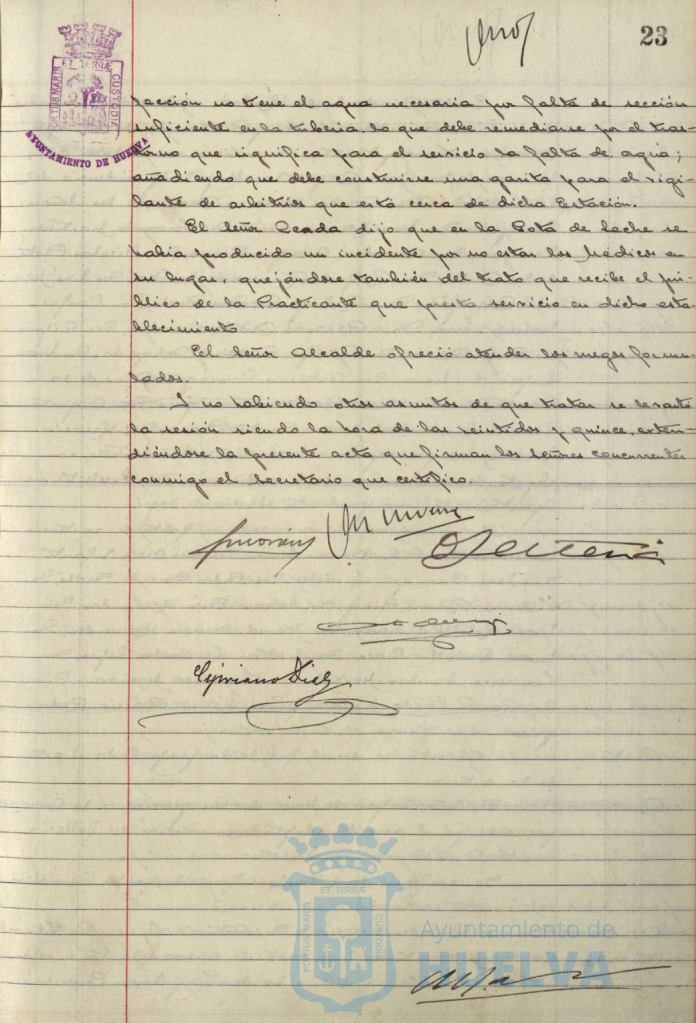 23
ET TERRÆ
PORTUS MARIS
CUSTODIA
AYUNTAMIENTO DE HUELVA
facción no tiene el agua necesaria por falta de sección
suficiente en la tubería lo que debe remediarse por el tras-
torno que significa para el servicio la falta de agua;
añadiendo que debe construirse una garita para el vigi-
lante de arbitrios que está cerca de dicha Estación.
El Señor dijo que en la Gota de Leche se
había producido un incidente por no estar los Médicos en
su lugar, quejándose también del trato que recibe el pú-
blico de la Practicante que presta servicio en dicho esta-
blecimiento
El Señor Alcalde ofreció atender los ruegos formu-
lados.
Y no habiendo otros asuntos de que tratar se levantó
la sesión siendo la hora de las veintidos y quince, exten-
diéndose la presente acta que firman los Señores concurrentes
conmigo el Secretario que certifico.
Cipriano Diaz
ET TERRÆ
PORTUS MARIS
CUSTODIA
Ayuntamiento de
HUELVA